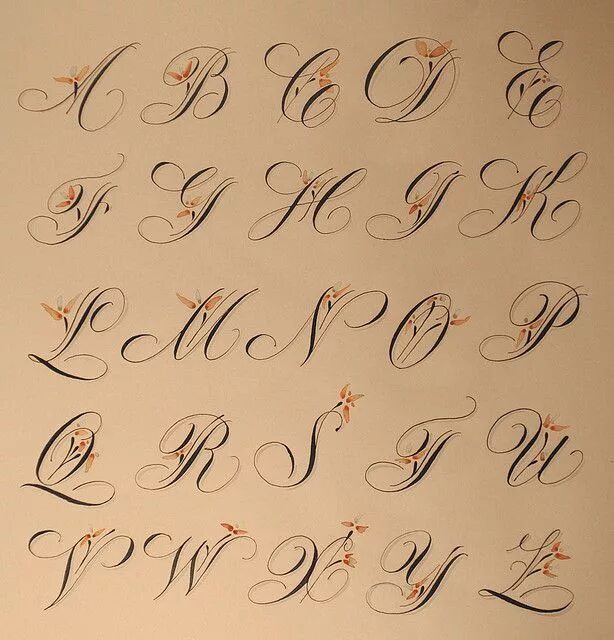 A B C D E
F G H I K
L M N O P
Q R S T U
V W X Y Z